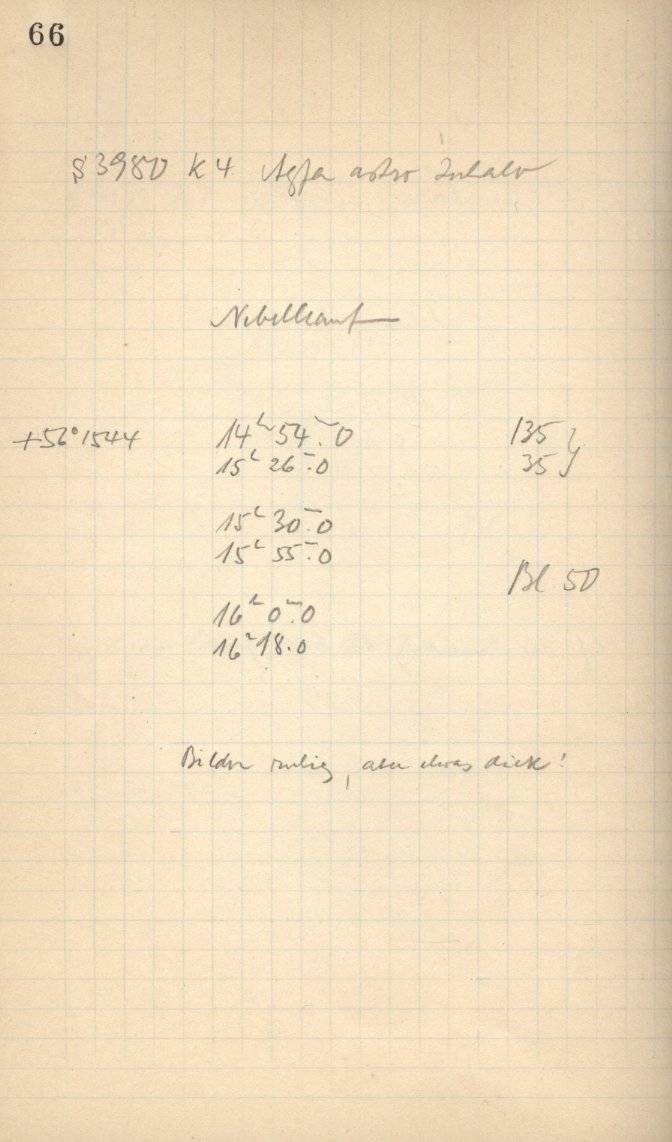 66
S 3980 K 4 Agfa astro
+56°1544 14ʰ 54ᵐ.0 135 }
15ʰ 26ᵐ.0 35 }
15ʰ 30ᵐ.0
15ʰ 55ᵐ.0
Bl 50
16ʰ 0ᵐ.0
16ʰ 18.0
Bilder ruhig, aber etwas dick!